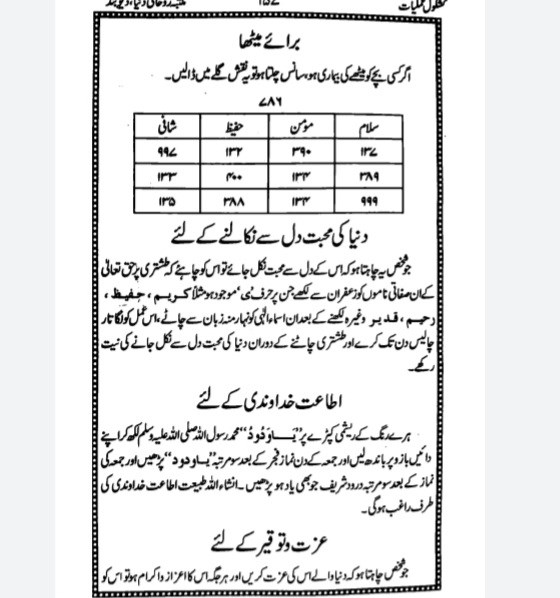 کشکول عملیات
۱۵۷
برائے میٹھا
اگر کسی بچے کو میٹھے کی بیماری ہو، سانس چلتا ہو تو یہ نقش گلے میں ڈالیں۔
۷۸۶
سلام مؤمن حفیظ شافی
۱۳۷ ۳۹۰ ۱۳۲ ۹۹۷
۳۸۹ ۱۳۴ ۴۰۰ ۱۳۳
۹۹۹ ۱۳۴ ۳۸۸ ۱۳۵
دنیا کی محبت دل سے نکالنے کے لئے
جو شخص یہ چاہتا ہو کہ اس کے دل سے محبت نکل جائے تو اس کو چاہئے کہ طشتری پر حق تعالیٰ
کے ان صفاتی ناموں کو زعفران سے لکھے جن پر حرف ’ی‘ موجود ہو مثلاً کریم، حفیظ،
رحیم، قدیر وغیرہ لکھنے کے بعد ان اسماء الٰہی کو نہار منہ زبان سے چاٹے، اس عمل کو لگاتار
چالیس دن تک کرے اور طشتری چاٹنے کے دوران دنیا کی محبت دل سے نکل جانے کی نیت
رکھے۔
اطاعت خداوندی کے لئے
ہرے رنگ کے ریشمی کپڑے پر ”یاودود“ محمد رسول اللہ صلی اللہ علیہ وسلم لکھ کر اپنے
دائیں بازو پر باندھ لیں اور جمعہ کے دن نماز فجر کے بعد سو مرتبہ ”یاودود“ پڑھیں اور جمعہ کی
نماز کے بعد سو مرتبہ درود شریف جو بھی یاد ہو پڑھیں۔ انشاء اللہ طبیعت اطاعت خداوندی کی
طرف راغب ہوگی۔
عزت و توقیر کے لئے
جو شخص چاہتا ہو کہ دنیا والے اس کی عزت کریں اور ہر جگہ اس کا اعزاز و اکرام ہو تو اس کو